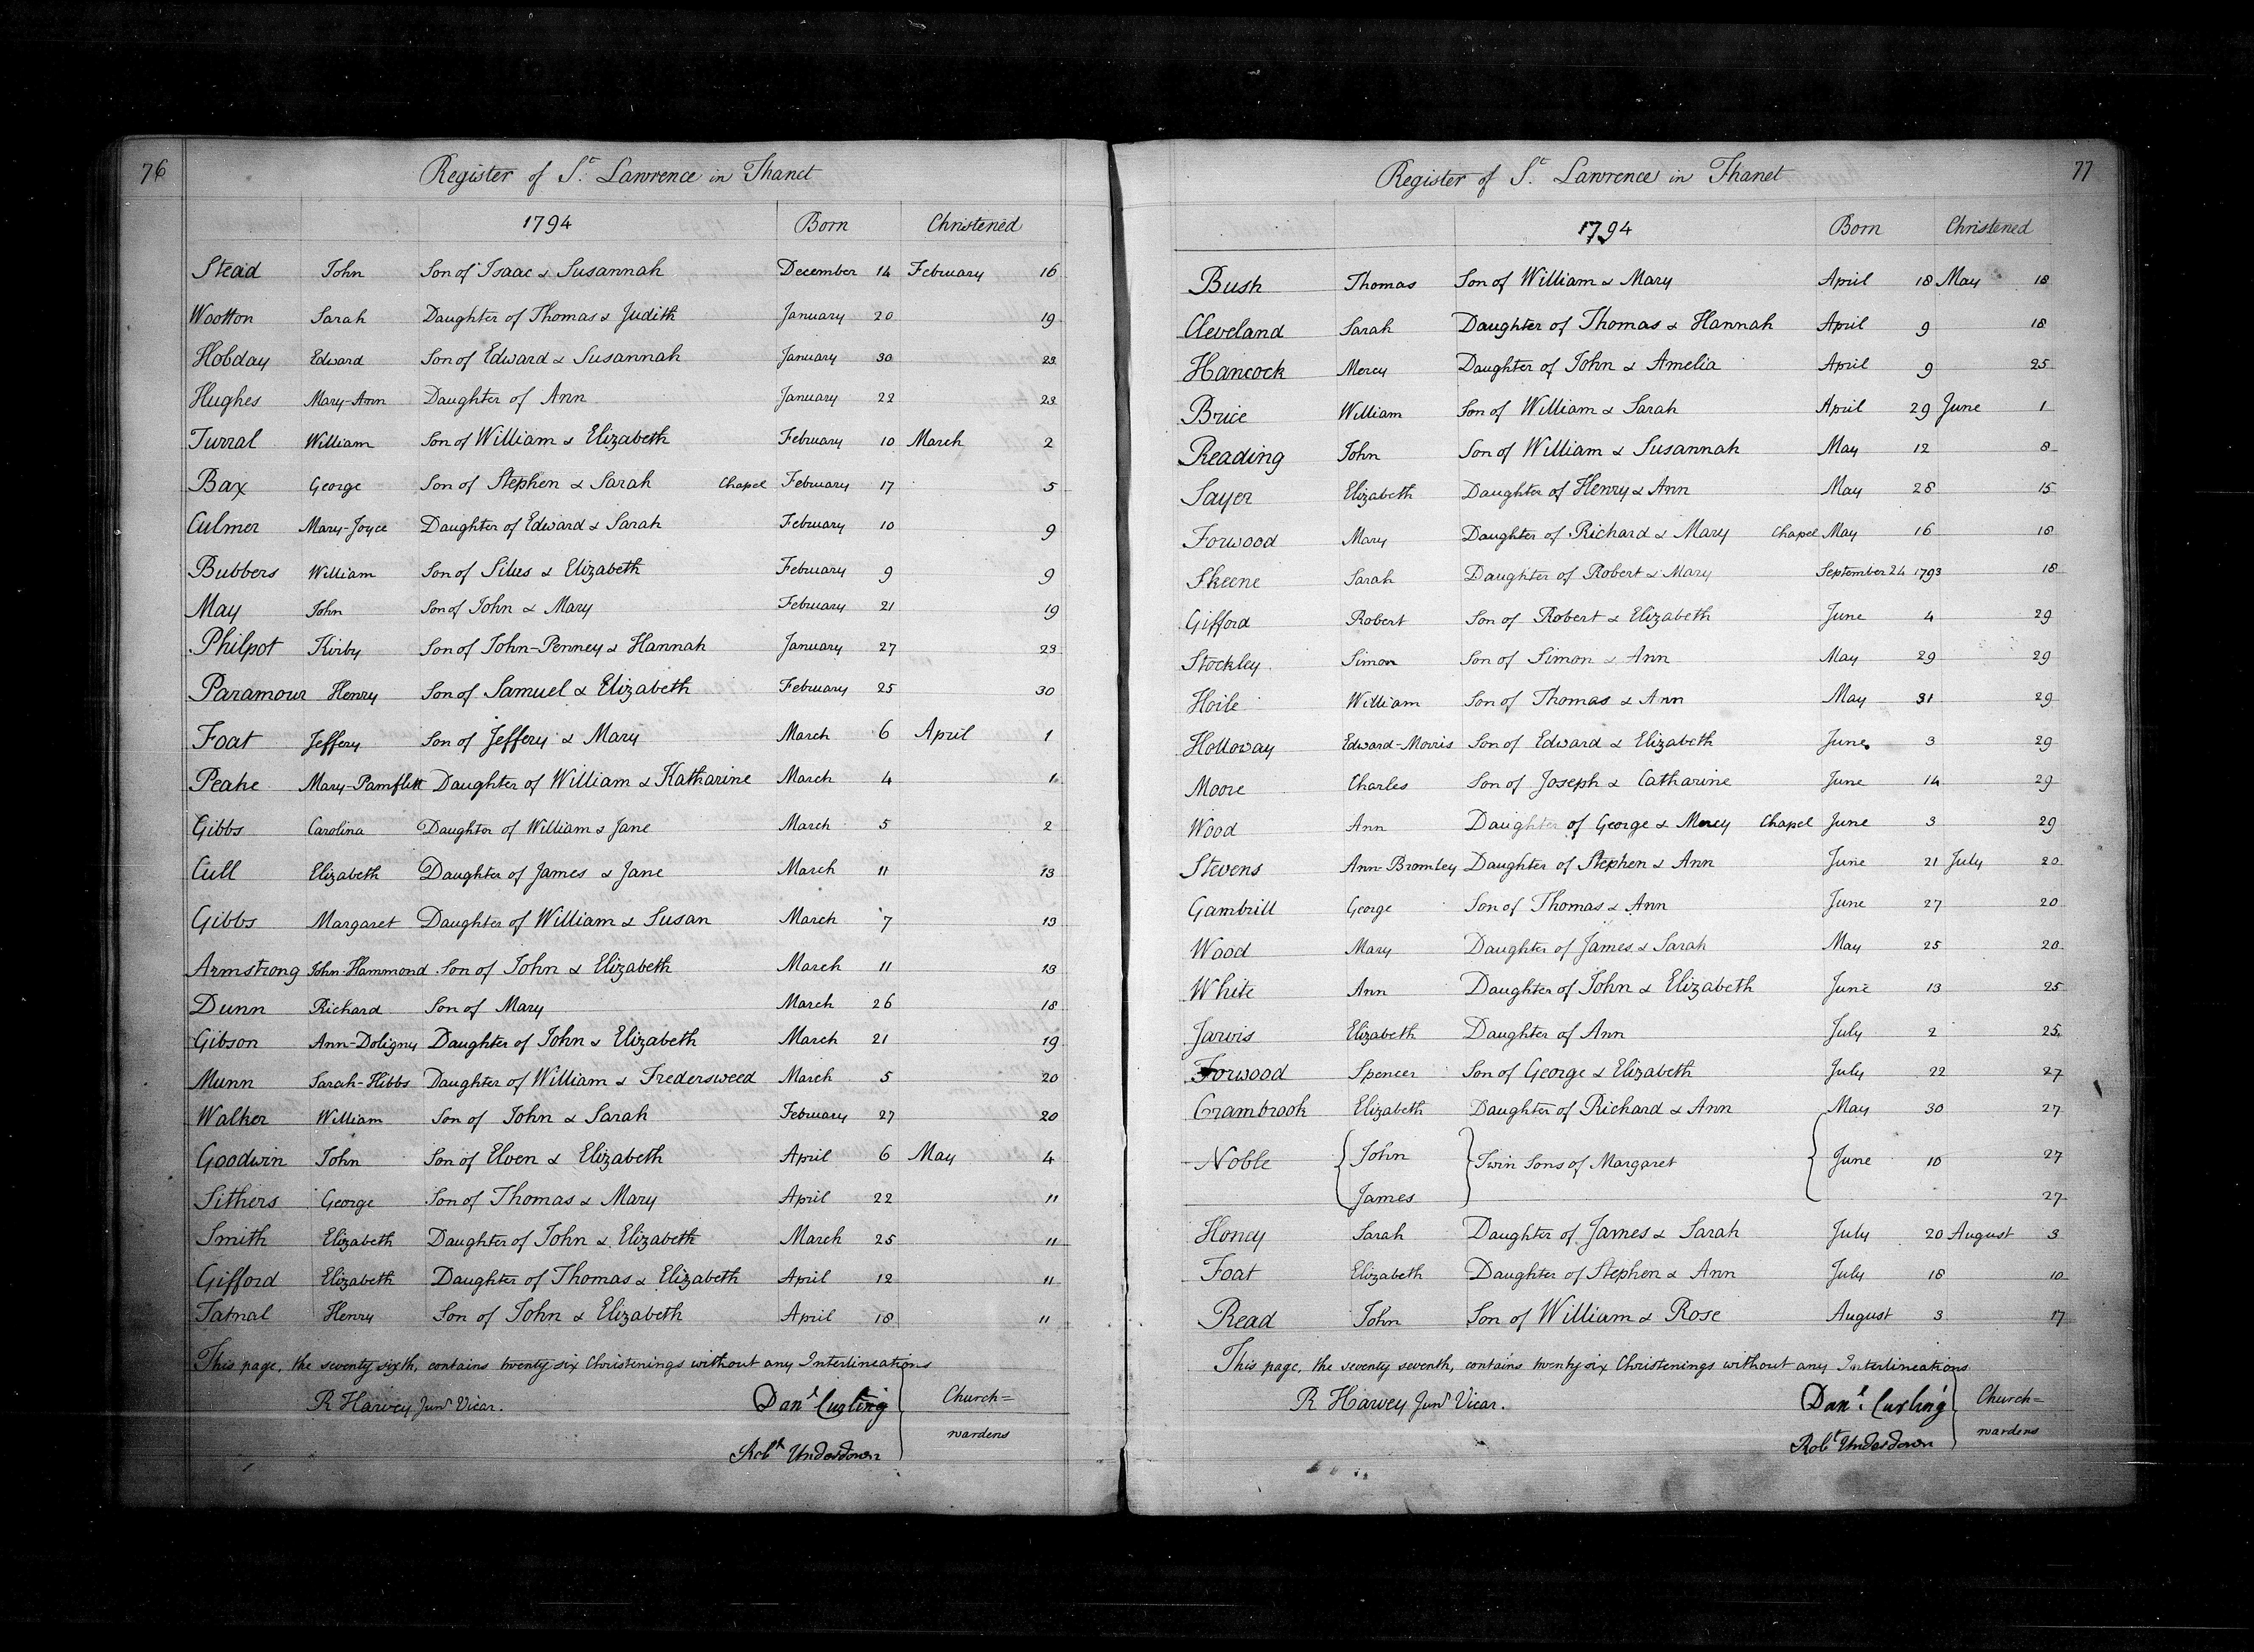 76
Register of St. Lawrence in Thanet
1794 Born Christened
Stead John Son of Isaac & Susannah December 14 February 16
Wootton Sarah Daughter of Thomas & Judith January 20 19
Hobday Edward Son of Edward & Susannah January 30 23
Hughes Mary-Ann Daughter of Ann January 22 23
Turral William Son of William & Elizabeth February 10 March 2
Bax George Son of Stephen & Sarah Chapel February 17 5
Culmer Mary-Joyce Daughter of Edward & Sarah February 10 9
Bubbers William Son of Silas & Elizabeth February 9 9
May John Son of John & Mary February 21 19
Philpot Kirby Son of John-Penney & Hannah January 27 23
Paramour Henry Son of Samuel & Elizabeth February 25 30
Foat Jeffery Son of Jeffery & Mary March 6 April 1
Peake Mary-Pamflett Daughter of William & Katharine March 4 1
Gibbs Carolina Daughter of William & Jane March 5 2
Cull Elizabeth Daughter of James & Jane March 11 13
Gibbs Margaret Daughter of William & Susan March 7 13
Armstrong John-Hammond Son of John & Elizabeth March 11 13
Dunn Richard Son of Mary March 26 18
Gibson Ann-Doligny Daughter of John & Elizabeth March 21 19
Munn Sarah-Hibbs Daughter of William & Fredersweed March 5 20
Walker William Son of John & Sarah February 27 20
Goodwin John Son of Elven & Elizabeth April 6 May 4
Sithers George Son of Thomas & Mary April 22 11
Smith Elizabeth Daughter of John & Elizabeth March 25 11
Gifford Elizabeth Daughter of Thomas & Elizabeth April 12 11
Tatnal Henry Son of John & Elizabeth April 18 11
This page, the seventy sixth, contains twenty six Christenings without any Interlineations
R Harvey Junr Vicar. Danl Curling Church=
Robt Underdown wardens
77
Register of St. Lawrence in Thanet
1794 Born Christened
Bush Thomas Son of William & Mary April 18 May 18
Cleveland Sarah Daughter of Thomas & Hannah April 9 18
Hancock Mercy Daughter of John & Amelia April 9 25
Brice William Son of William & Sarah April 29 June 1
Reading John Son of William & Susannah May 12 8
Sayer Elizabeth Daughter of Henry & Ann May 28 15
Forwood Mary Daughter of Richard & Mary Chapel May 16 18
Skeene Sarah Daughter of Robert & Mary September 24 1793 18
Gifford Robert Son of Robert & Elizabeth June 4 29
Stockley Simon Son of Simon & Ann May 29 29
Hoile William Son of Thomas & Ann May 31 29
Holloway Edward-Morris Son of Edward & Elizabeth June 3 29
Moore Charles Son of Joseph & Catharine June 14 29
Wood Ann Daughter of George & Mercy Chapel June 3 29
Stevens Ann-Bromley Daughter of Stephen & Ann June 21 July 20
Gambrill George Son of Thomas & Ann June 27 20
Wood Mary Daughter of James & Sarah May 25 20
White Ann Daughter of John & Elizabeth June 13 25
Jarvis Elizabeth Daughter of Ann July 2 25
Forwood Spencer Son of George & Elizabeth July 22 27
Crambrook Elizabeth Daughter of Richard & Ann May 30 27
Noble John Twin Sons of Margaret June 10 27
James 27
Honey Sarah Daughter of James & Sarah July 20 August 3
Foat Elizabeth Daughter of Stephen & Ann July 18 10
Read John Son of William & Rose August 3 17
This page, the seventy seventh, contains twenty six Christenings without any Interlineations
R Harvey Junr Vicar. Danl Curling Church=
Robt Underdown wardens